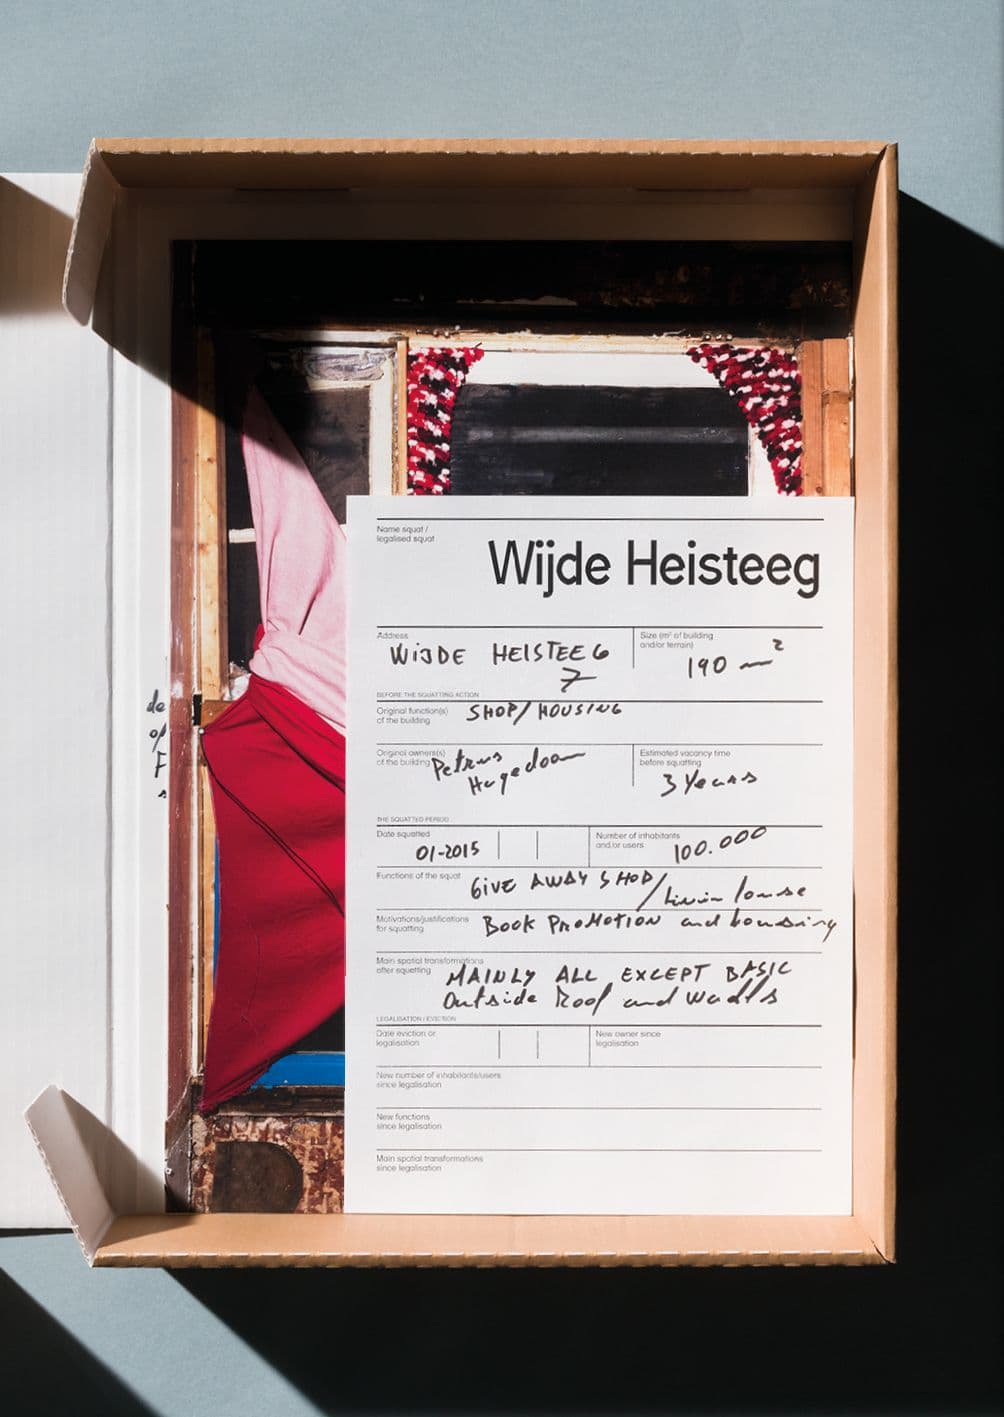 Name squat /
legalised squat
Wijde Heisteeg
Address
WIJDE HEISTEEG
7
Size (m² of building
and/or terrain)
190 m²
BEFORE THE SQUATTING ACTION
Original function(s)
of the building
SHOP/HOUSING
Original owners(s)
of the building
Petrus
Hagedoorn
Estimated vacancy time
before squatting
3 Years
THE SQUATTED PERIOD
Date squatted
01-2015
Number of inhabitants
and/or users
100.000
Functions of the squat
GIVE AWAY SHOP/
Motivations/justifications
for squatting
BOOK PROMOTION and housing
Main spatial transformations
after squatting
MAINLY ALL EXCEPT BASIC
Outside Roof and Walls
LEGALISATION / EVICTION
Date eviction or
legalisation
New owner since
legalisation
New number of inhabitants/users
since legalisation
New functions
since legalisation
Main spatial transformations
since legalisation
de
op
F
s